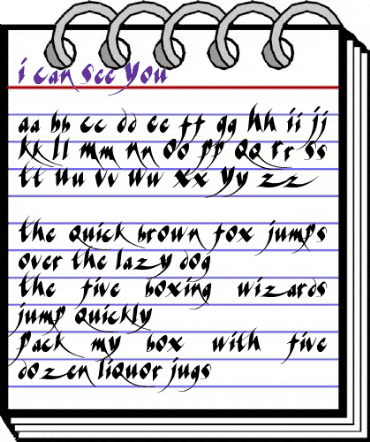 i can see you
aa bb cc dd ee ff gg hh ii jj
kk ll mm nn oo pp qq rr ss
tt uu vv ww xx yy zz
the quick brown fox jumps
over the lazy dog
the five boxing wizards
jump quickly
pack my box with five
dozen liquor jugs